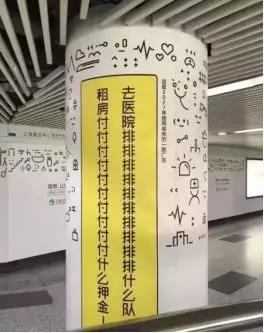 去医院排排排排排排排排排什么队
租房付付付付付付付付付什么押金!